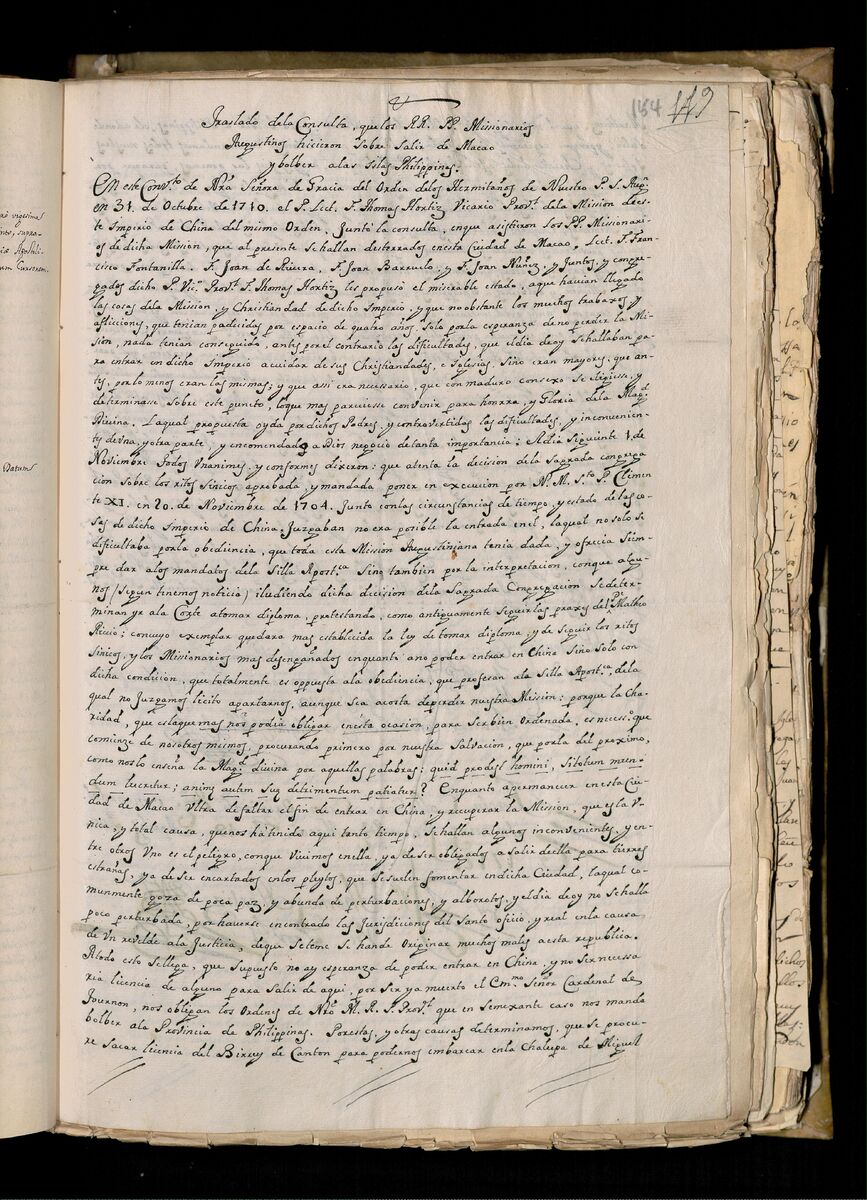 154 149
Traslado dela Consulta, quelos RR. PP. Missionarios
Augustinos hicieron sobre salir de Macao
y bolber alas Islas Philippinas.
En este Conv.to de Nrã Señora de Gracia del Orden delos Hermitaños de Nuestro P. S. Aug.n
en 31. de Octubre de 1710. el P. Lect. F. Thomas Hortiz Vicario Prov.l dela Mission de es-
te Imperio de China del mismo Orden, Juntó la consulta, enque asistieron los PP. Missionari-
os de dicha Mission, que al presente se hallan desterrados en esta Cuidad de Macao, Lect. F. Fran-
cisco Fontanilla. F. Joan de Rivera, F. Joan Barruelo, y F. Joan Nuñez, y Juntos, y congre-
gados dicho P. Vic.o Prov.l F. Thomas Hortiz les propusò el miserable estado, aque havian llegado
las cosas dela Mission, y Christiandad de dicho Imperio, y que no obstante los muchos trabaxos, y
aflicciones, que tenian padecidas por espacio de quatro años, solo porla esperanza deno perder la Mi-
sion, nada tenian conseguido, antes porel contrario las dificultades, que el dia de oy se hallaban pa-
ra entrar en dicho Imperio acuidar de sus Christiandades, e Iglesias, sino eran mayores, que an-
tes, por lo menos eran las mismas; y que assi era necessario, que con maduro consexo se eligiesse, y
determinasse sobre este puncto, loque mas pareciesse convenir para honrra, y Gloria dela Mag.d
Divina. Laqual propuesta oyda por dichos Padres, y controvertidas las dificultades, y inconvenien-
tes de una, y otra parte, y encomendado a Dios negocio de tanta importancia: El dia siguiente 1. de
Noviembre Todos Vnanimes, y conformes dixeron: que atenta la decision dela Sagrada congrega
cion sobre los ritos sinicos aprobada, y mandada poner en execucion por N. M. S.to P. Clemen
te XI. en 20. de Noviembre de 1704. Junto conlas circunstancias de tiempo, y estado de las co-
sas de dicho Imperio de China. Juzgaban no era posible la entrada en el, laqual no solo se
dificultaba porla obediencia, que toda esta Mission Augustiniana tenia dada, y ofrecia siem-
pre dar alos mandatos dela Silla Apost.ca sino tambien por la interpretacion, conque algu-
nos (segun tenemos noticia) iludiendo dicha decision dela Sagrada Congregacion se deter-
minan yr ala Corte atomar diploma, protestando, como antiguamente seguir las praxes del P. Matheo
Riccio; concuyo exemplar quedara mas establecida la ley de tomar diploma, y de seguir los ritos
sinicos, y los Missionarios mas desengañados enquanto ano poder entrar en China sino solo con
dicha condicion, que totalmente es oppuesta ala obediencia, que profesan ala Silla Apost.ca, dela
qual no Juzgamos licito apartarnos, aunque sea acosta deperder nuestra Mission: porque la Cha-
ridad, que eslaque mas nos podia obligar en esta ocasion, para ser bien Ordenada, es necess.o que
comienze de nosotros mismos, procurando primero por nuestra Salvacion, que porla del proximo,
como noslo enseña la Mag.d divina por aquellas palabras; quid prodest homini, si totum mun-
dum lucretur; animę autem suę detrimentum patiatur? Enquanto apermanecer en esta Ciu-
dad de Macao Vltra de faltar el fin de entrar en China, y recuperar la Mission, que es la V-
nica, y total causa, quenos hà tenido aqui tanto tiempo, se hallan algunos inconvenientes, y en-
tre otros Vno es el peligro, conque vivimos enella, ya de ser obligados a salir de ella para tierras
estrañas, ya de ser encartados enlos pleytos, que se suelen fomentar en dicha Ciudad, laqual co-
munmente goza de poca paz, y abunda de perturbaciones, y alborotos, y el dia de oy no se halla
poco perturbada, por haverse encontrado las Jurisdiciones del Santo oficio, y real en la causa
de Vn revelde ala Justicia, de que se teme se han de Originar muchos males a esta republica.
A todo esto se llega, que supuesto no ay esperanza de poder entrar en China, y no ser necessa
ria licencia de alguno para salir de aqui, por ser ya muerto el Em.mo Señor Cardenal de
Tournon, nos obligan los Ordenes de Nrõ M. R. P. Prov.l que en semexante caso nos manda
bolber ala Provincia de Philippinas. Por estas, y otras causas determinamos, que se procu-
re sacar licencia del Birrey de Canton para podernos embarcar enla Chalupa de Miguel